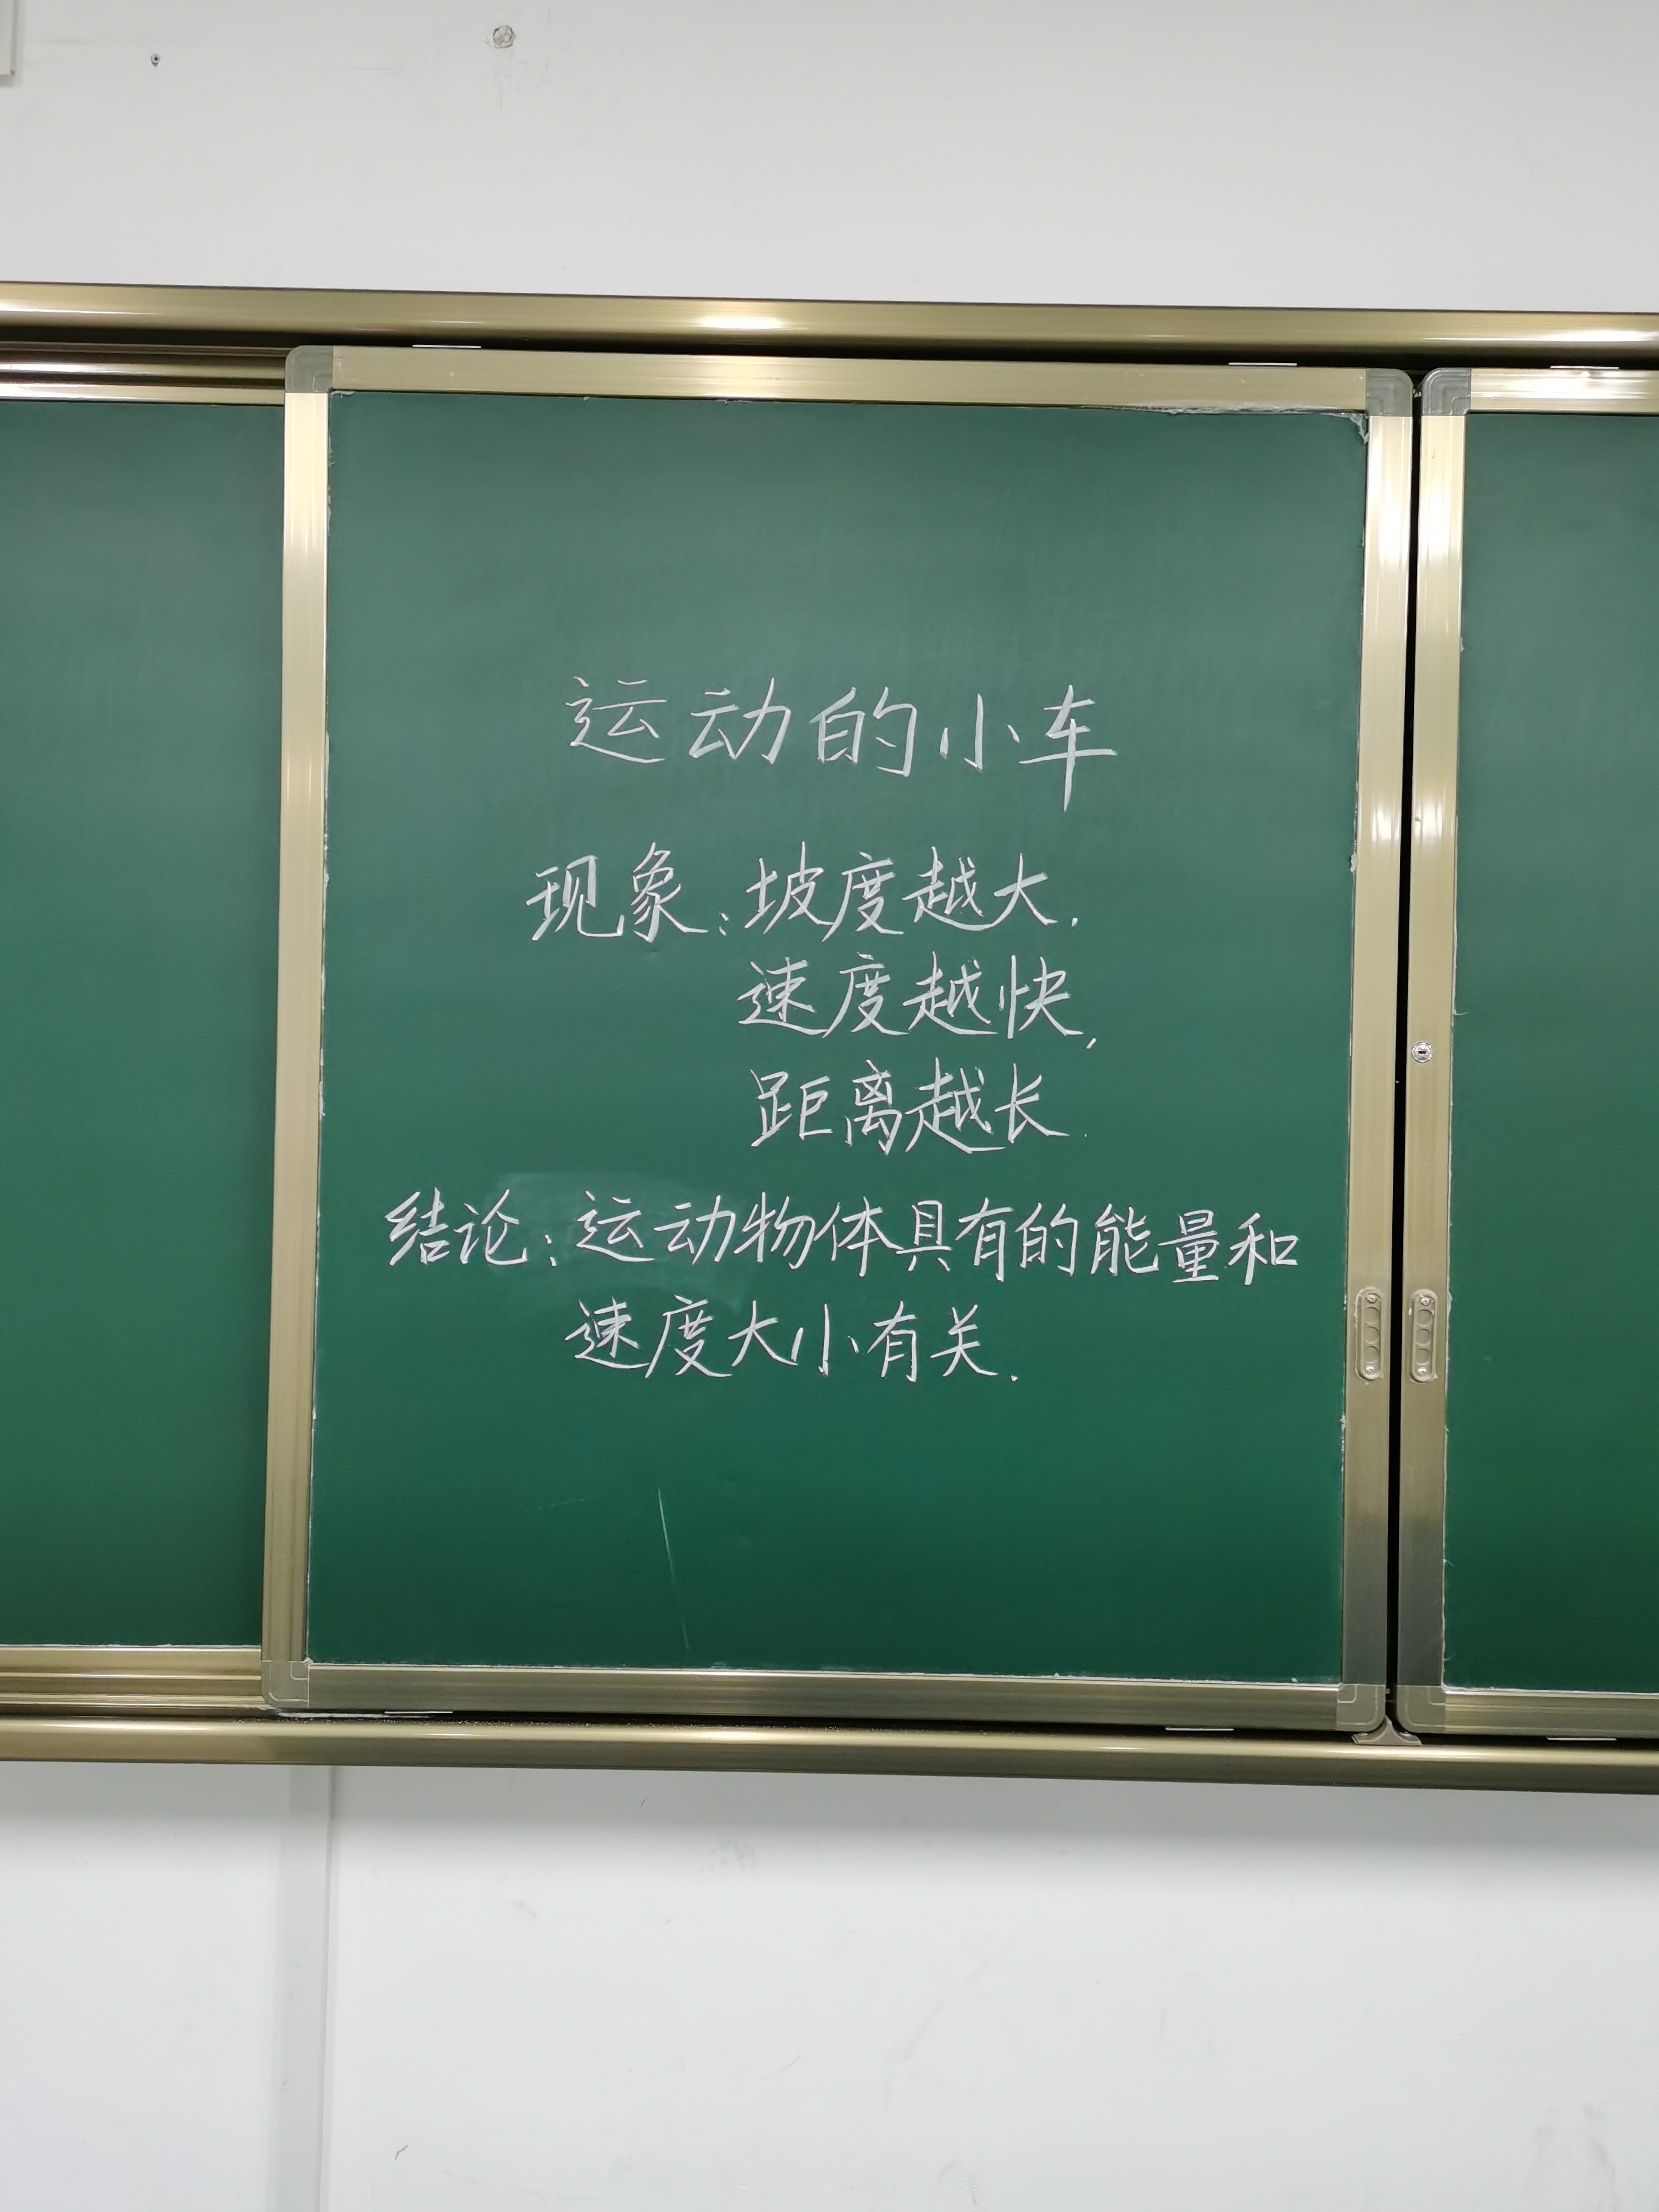 运动的小车
现象:坡度越大.
速度越快,
距离越长.
结论:运动物体具有的能量和
速度大小有关.